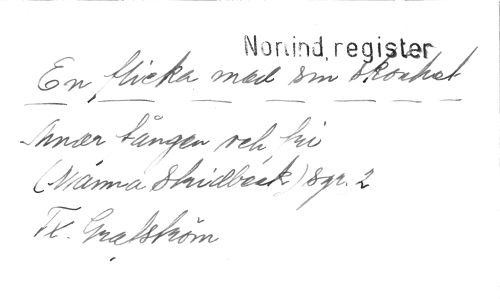 Nortind, register
En flicka med sin skönhet
Innær fången och fri
(Nanna Skridbeck) sgr. 2
Tx. Grafström